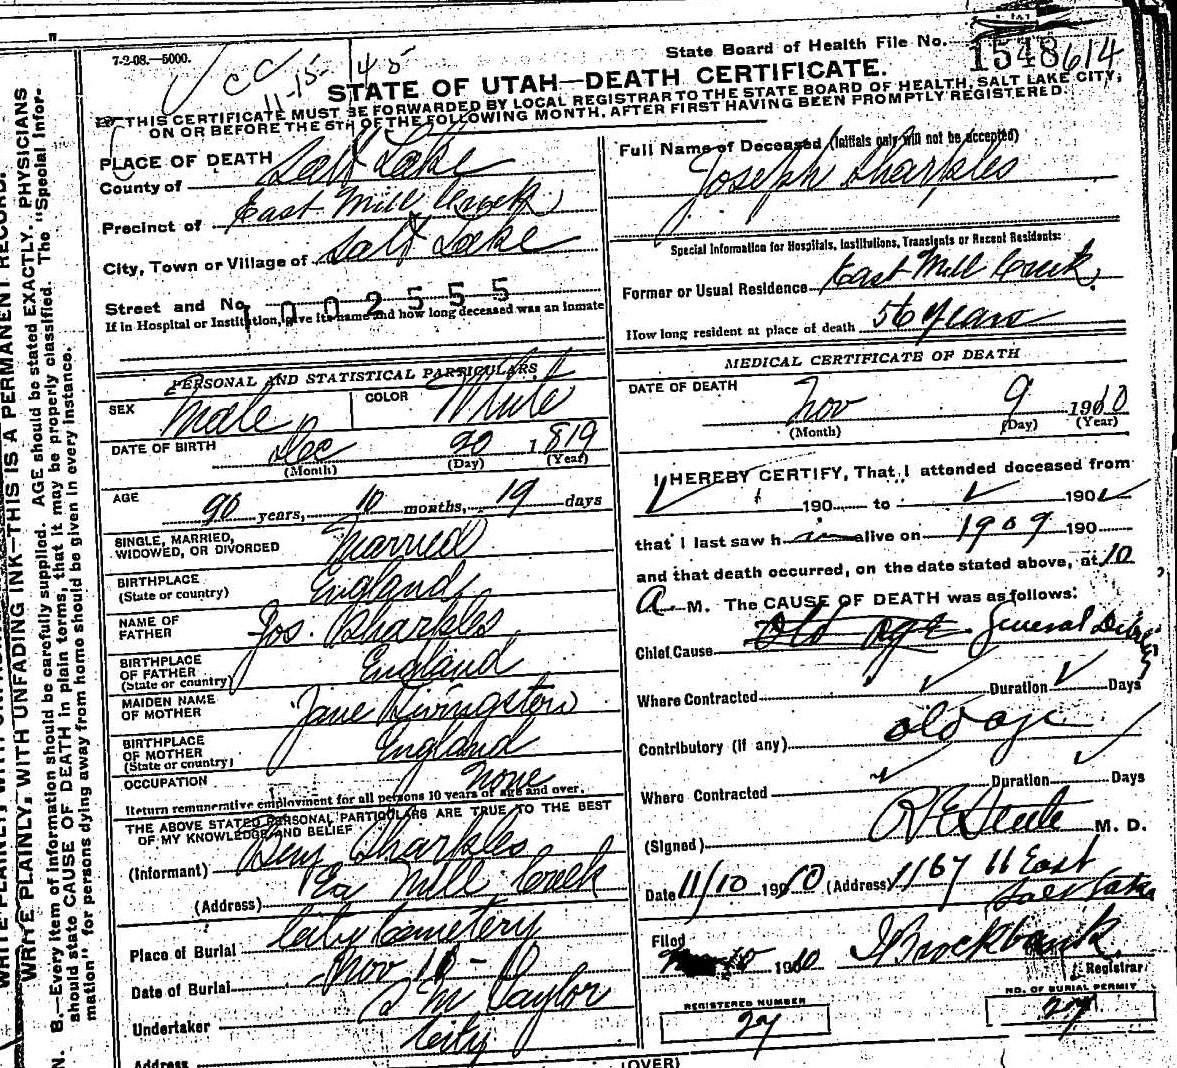 7-2-08.—5000.
State Board of Health File No.
1548614
CC
11-15-
STATE OF UTAH—DEATH CERTIFICATE.
THIS CERTIFICATE MUST BE FORWARDED BY LOCAL REGISTRAR TO THE STATE BOARD OF HEALTH, SALT LAKE CITY,
ON OR BEFORE THE 5TH OF THE FOLLOWING MONTH, AFTER FIRST HAVING BEEN PROMPTLY REGISTERED.
PLACE OF DEATH
County of Salt Lake
Precinct of East Mill Creek
City, Town or Village of Salt Lake
Street and No.
1002555
If in Hospital or Institution, give its name and how long deceased was an inmate
PERSONAL AND STATISTICAL PARTICULARS
SEX Male
COLOR White
DATE OF BIRTH Dec 20 1819
(Month) (Day) (Year)
AGE 90 years, 10 months, 19 days
SINGLE, MARRIED,
WIDOWED, OR DIVORCED Married
BIRTHPLACE
(State or country) England
NAME OF
FATHER Jos. Sharples
BIRTHPLACE
OF FATHER
(State or country) England
MAIDEN NAME
OF MOTHER Jane Livingston
BIRTHPLACE
OF MOTHER
(State or country) England
OCCUPATION None
Return remunerative employment for all persons 10 years of age and over.
THE ABOVE STATED PERSONAL PARTICULARS ARE TRUE TO THE BEST
OF MY KNOWLEDGE AND BELIEF
(Informant) Benj Sharples
(Address) Ea Mill Creek
Place of Burial City Cemetery
Date of Burial Nov
Undertaker S M Taylor
Address City
Full Name of Deceased (Initials only will not be accepted)
Joseph Sharples
Special Information for Hospitals, Institutions, Transients or Recent Residents:
Former or Usual Residence East Mill Creek
How long resident at place of death 56 Years
MEDICAL CERTIFICATE OF DEATH
DATE OF DEATH
Nov 9 1910
(Month) (Day) (Year)
I HEREBY CERTIFY, That I attended deceased from
190 to 190
that I last saw h im alive on 1909 190
and that death occurred, on the date stated above, at 10
A M. The CAUSE OF DEATH was as follows:
Chief Cause Old age General Debility
Where Contracted Duration Days
Contributory (if any) old age
Where Contracted Duration Days
(Signed) M. D.
Date 11/10 1910 (Address) 1167 11 East
Salt Lake
Filed
10 1910 Brockbank
Registrar
REGISTERED NUMBER
27
NO. OF BURIAL PERMIT
27
(OVER)
WRITE PLAINLY, WITH UNFADING INK—THIS IS A PERMANENT RECORD.
N. B.—Every item of information should be carefully supplied. AGE should be stated EXACTLY. PHYSICIANS
should state CAUSE OF DEATH in plain terms, that it may be properly classified. The "Special Infor-
mation" for persons dying away from home should be given in every instance.